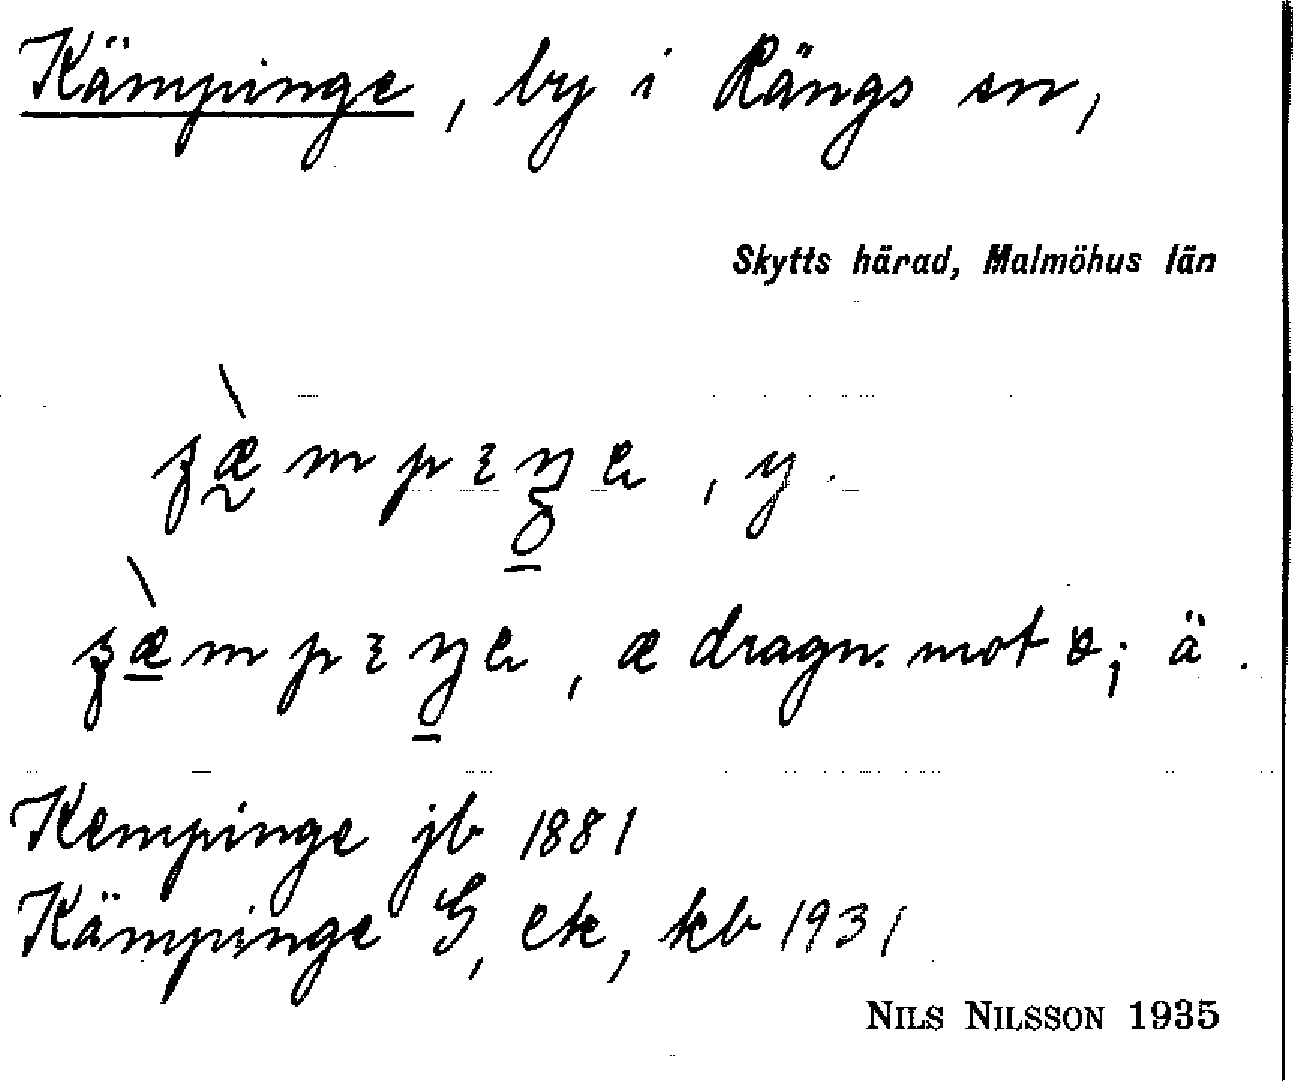 Kämpinge, by i Rängs sn,
Skytts härad, Malmöhus län
, y.
, æ dragn. mot ; ä.
Kempinge jb 1881
Kämpinge G, ek, kb 1931
NILS NILSSON 1935